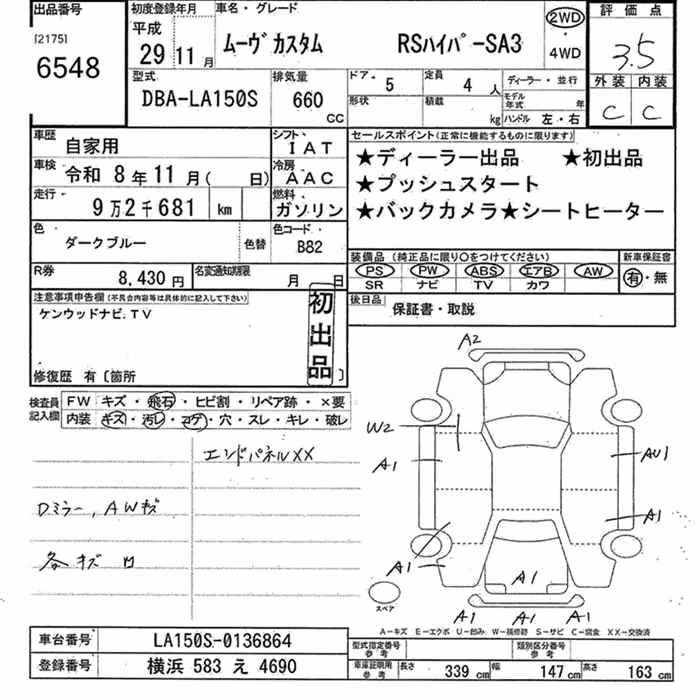 出品番号 初度登録年月 車名・グレード 2WD 評価点
[2175] 平成 ・
6548 29年 11月 ムーヴカスタム RSハイパーSA3 4WD 3.5
型式 排気量 ドア・ 5 定員 4人 ディーラー・並行 外装 内装
DBA-LA150S 660CC 形状 積載 kg モデル年式 年 C C
ハンドル 左・右
車歴 自家用 シフト IAT セールスポイント(正常に機能するものに限ります)
車検 令和 8年 11月( 日) 冷房 AAC ★ディーラー出品 ★初出品
走行 9万2千681 km 燃料 ガソリン ★プッシュスタート
★バックカメラ★シートヒーター
色 ダークブルー 色替 色コード B82
装備品(純正品に限り○をつけてください) 新車保証書
R券 8,430円 名変通知期限 月 日 PS PW ABS エアB AW 有・無
SR ナビ TV カワ
注意事項申告欄(不具合内容等は具体的に記入して下さい) 初出品 後日品 保証書・取説
ケンウッドナビ.TV
修復歴 有〔箇所 〕
検査員記入欄 FW キズ・飛石・ヒビ割・リペア跡・×要
内装 キズ・汚レ・コゲ・穴・スレ・キレ・破レ
エンドパネルXX
Dミラー,AWキズ
各キズ凹
A2
W2
A1 AU1
A1
A1
A1
スペア A1 A1 A1
A-キズ E-エクボ U-凹み W-補修跡 S-サビ C-腐食 XX-交換済
車台番号 LA150S-0136864 型式指定番号参考 類別区分番号参考
登録番号 横浜 583 え 4690 車庫証明用参考 長さ 339cm 幅 147cm 高さ 163cm